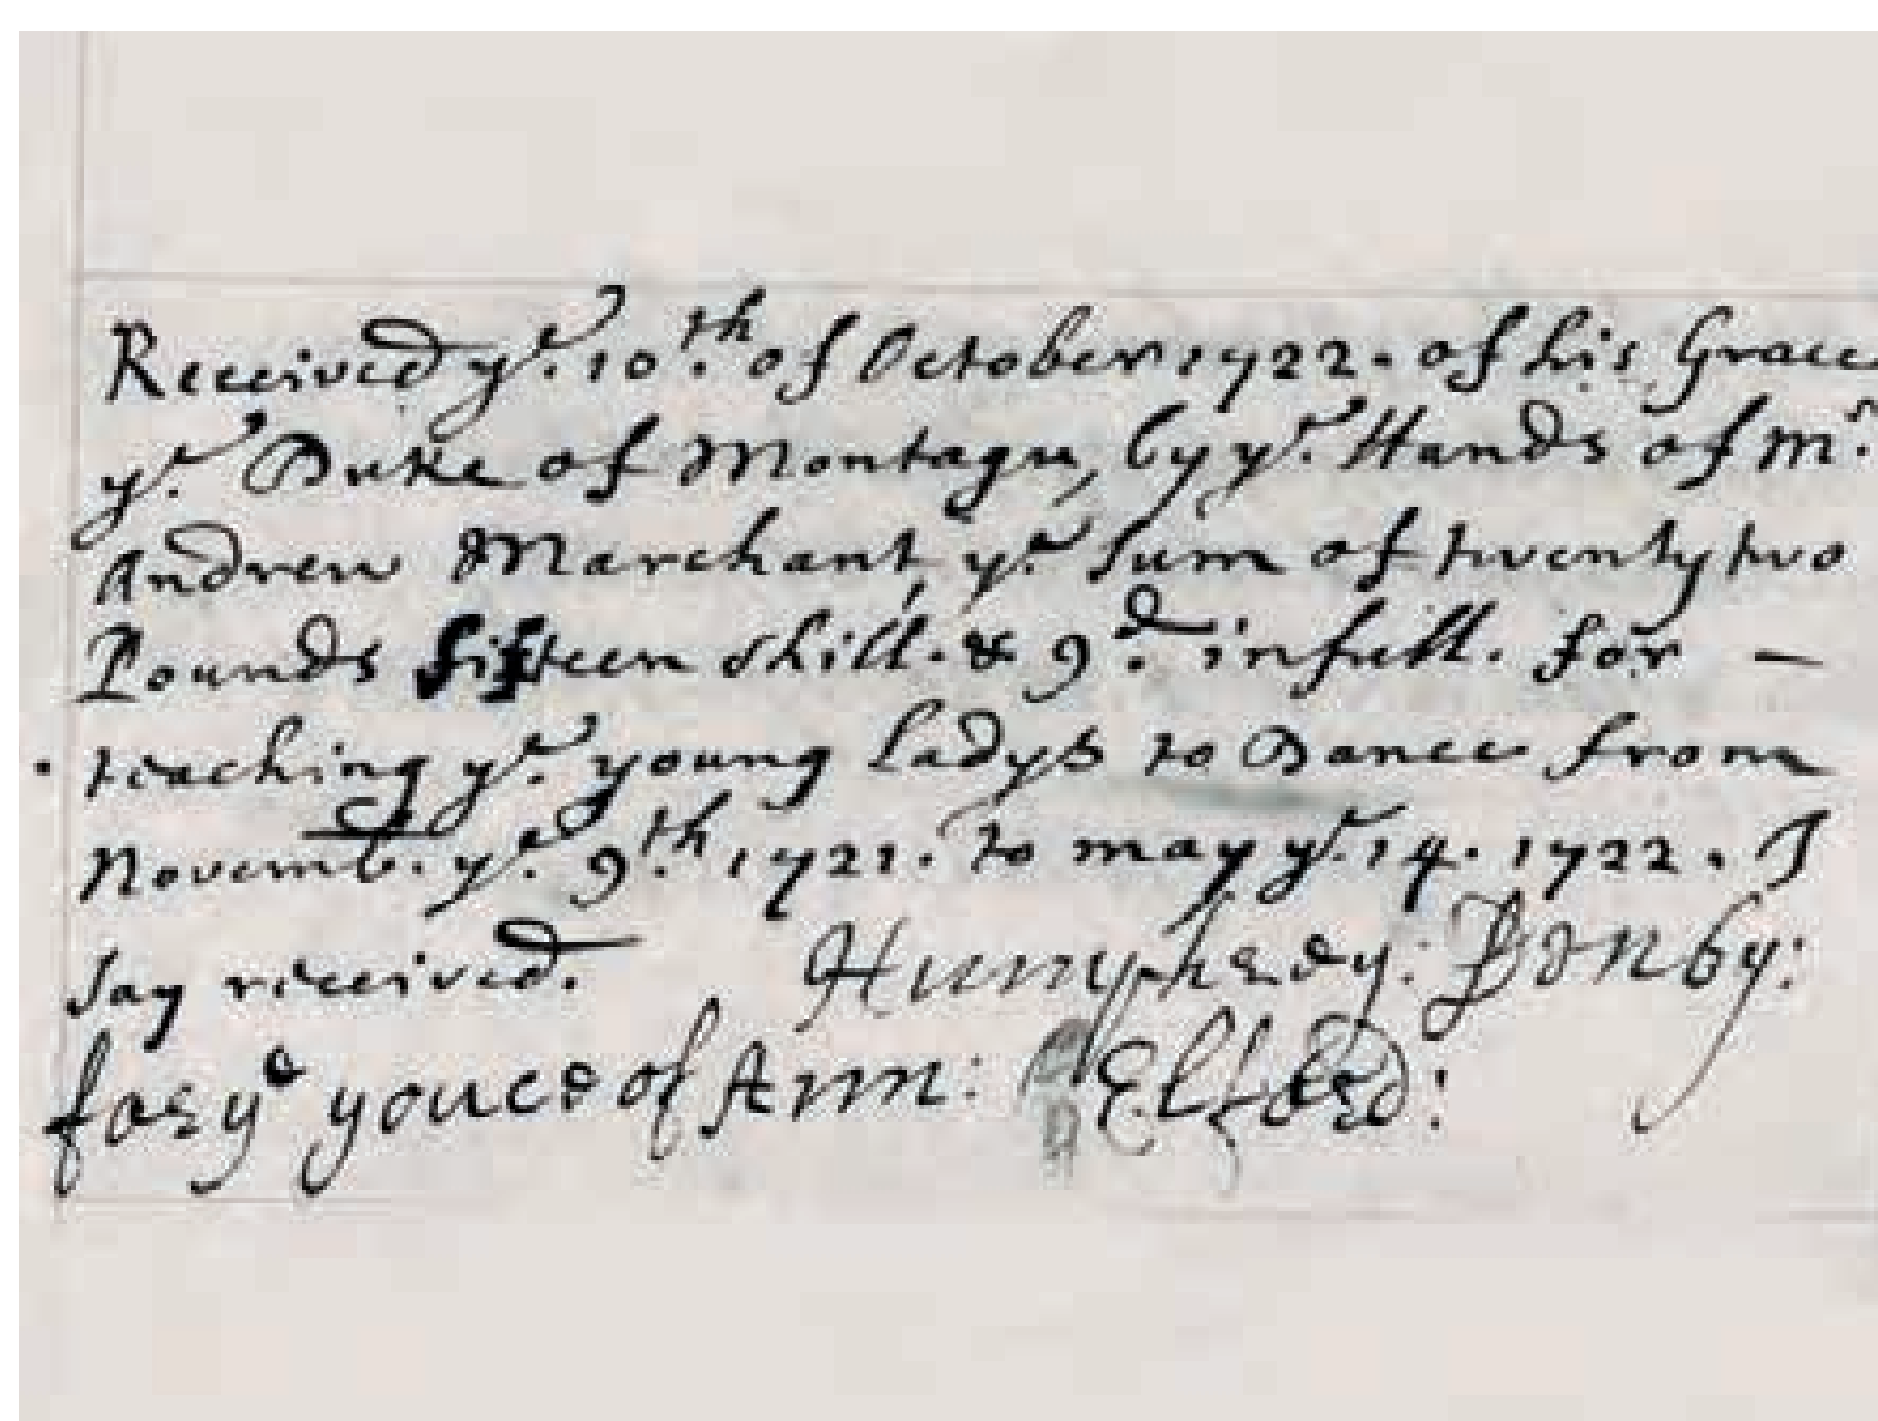 Received yᵉ. 10.ᵗʰ of October 1722. of his Grace
yᵉ. Duke of Montagu, by yᵉ. Hands of Mʳ.
Andrew Marchant, yᵉ. Sum of twenty two
Pounds fifteen shill. & 9.ᵈ in full. for —
teaching yᵉ. young Ladys to Dance from
Novemb. yᵉ. 9.ᵗʰ 1721. to may yᵉ. 14. 1722. I
Say received. Humphery: Donby:
for yᵉ youce of Ann: Elford: